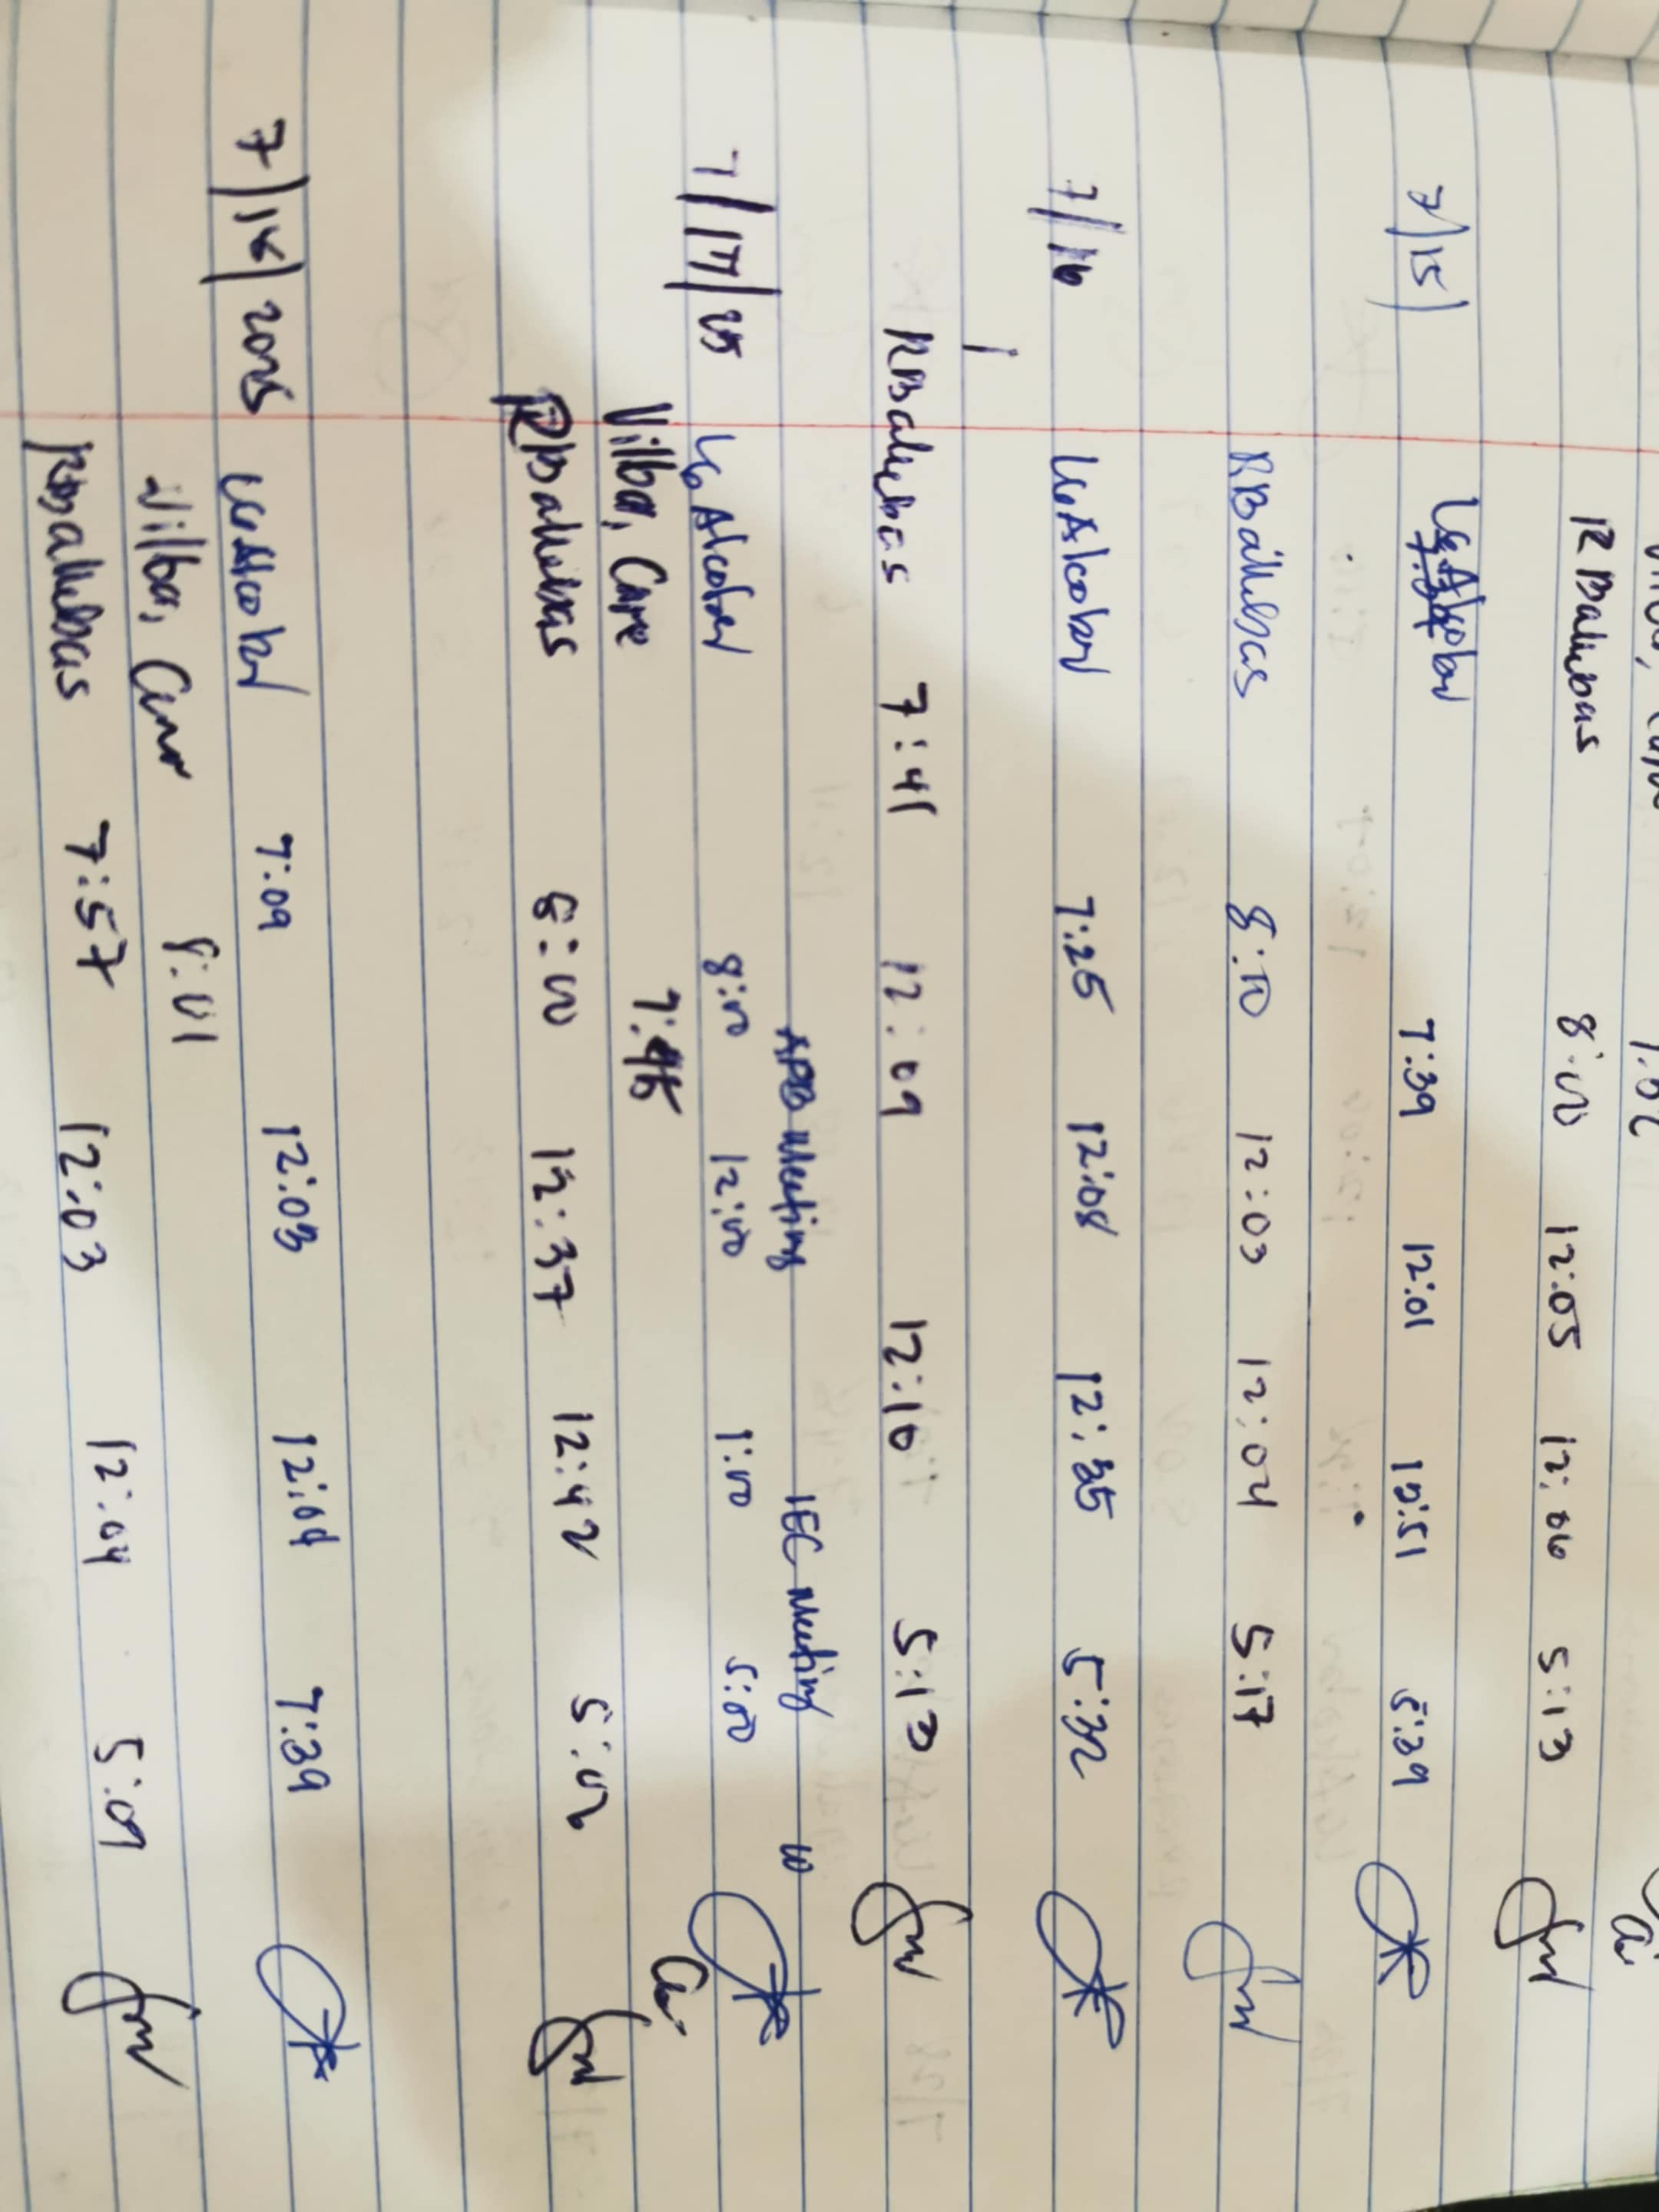 RBalubas 8:00 12:05 12:06 5:13
7/15/ LGAlcober 7:39 12:01 12:51 5:39
RBalubas 8:10 12:03 12:04 5:17
7/16 LGAlcober 7:25 12:08 12:35 5:32
RBalubas 7:41 12:09 12:10 5:13
APB Meeting IEC Meeting
7/17/25 LGAlcober 8:00 12:00 1:00 5:00
Vilbar, 7:46
RBalubas 8:00 12:37 12:42 5:02
7/18/2025 LGAlcober 7:09 12:03 12:04 7:39
Vilbar, 8:01
RBalubas 7:57 12:03 12:04 5:09